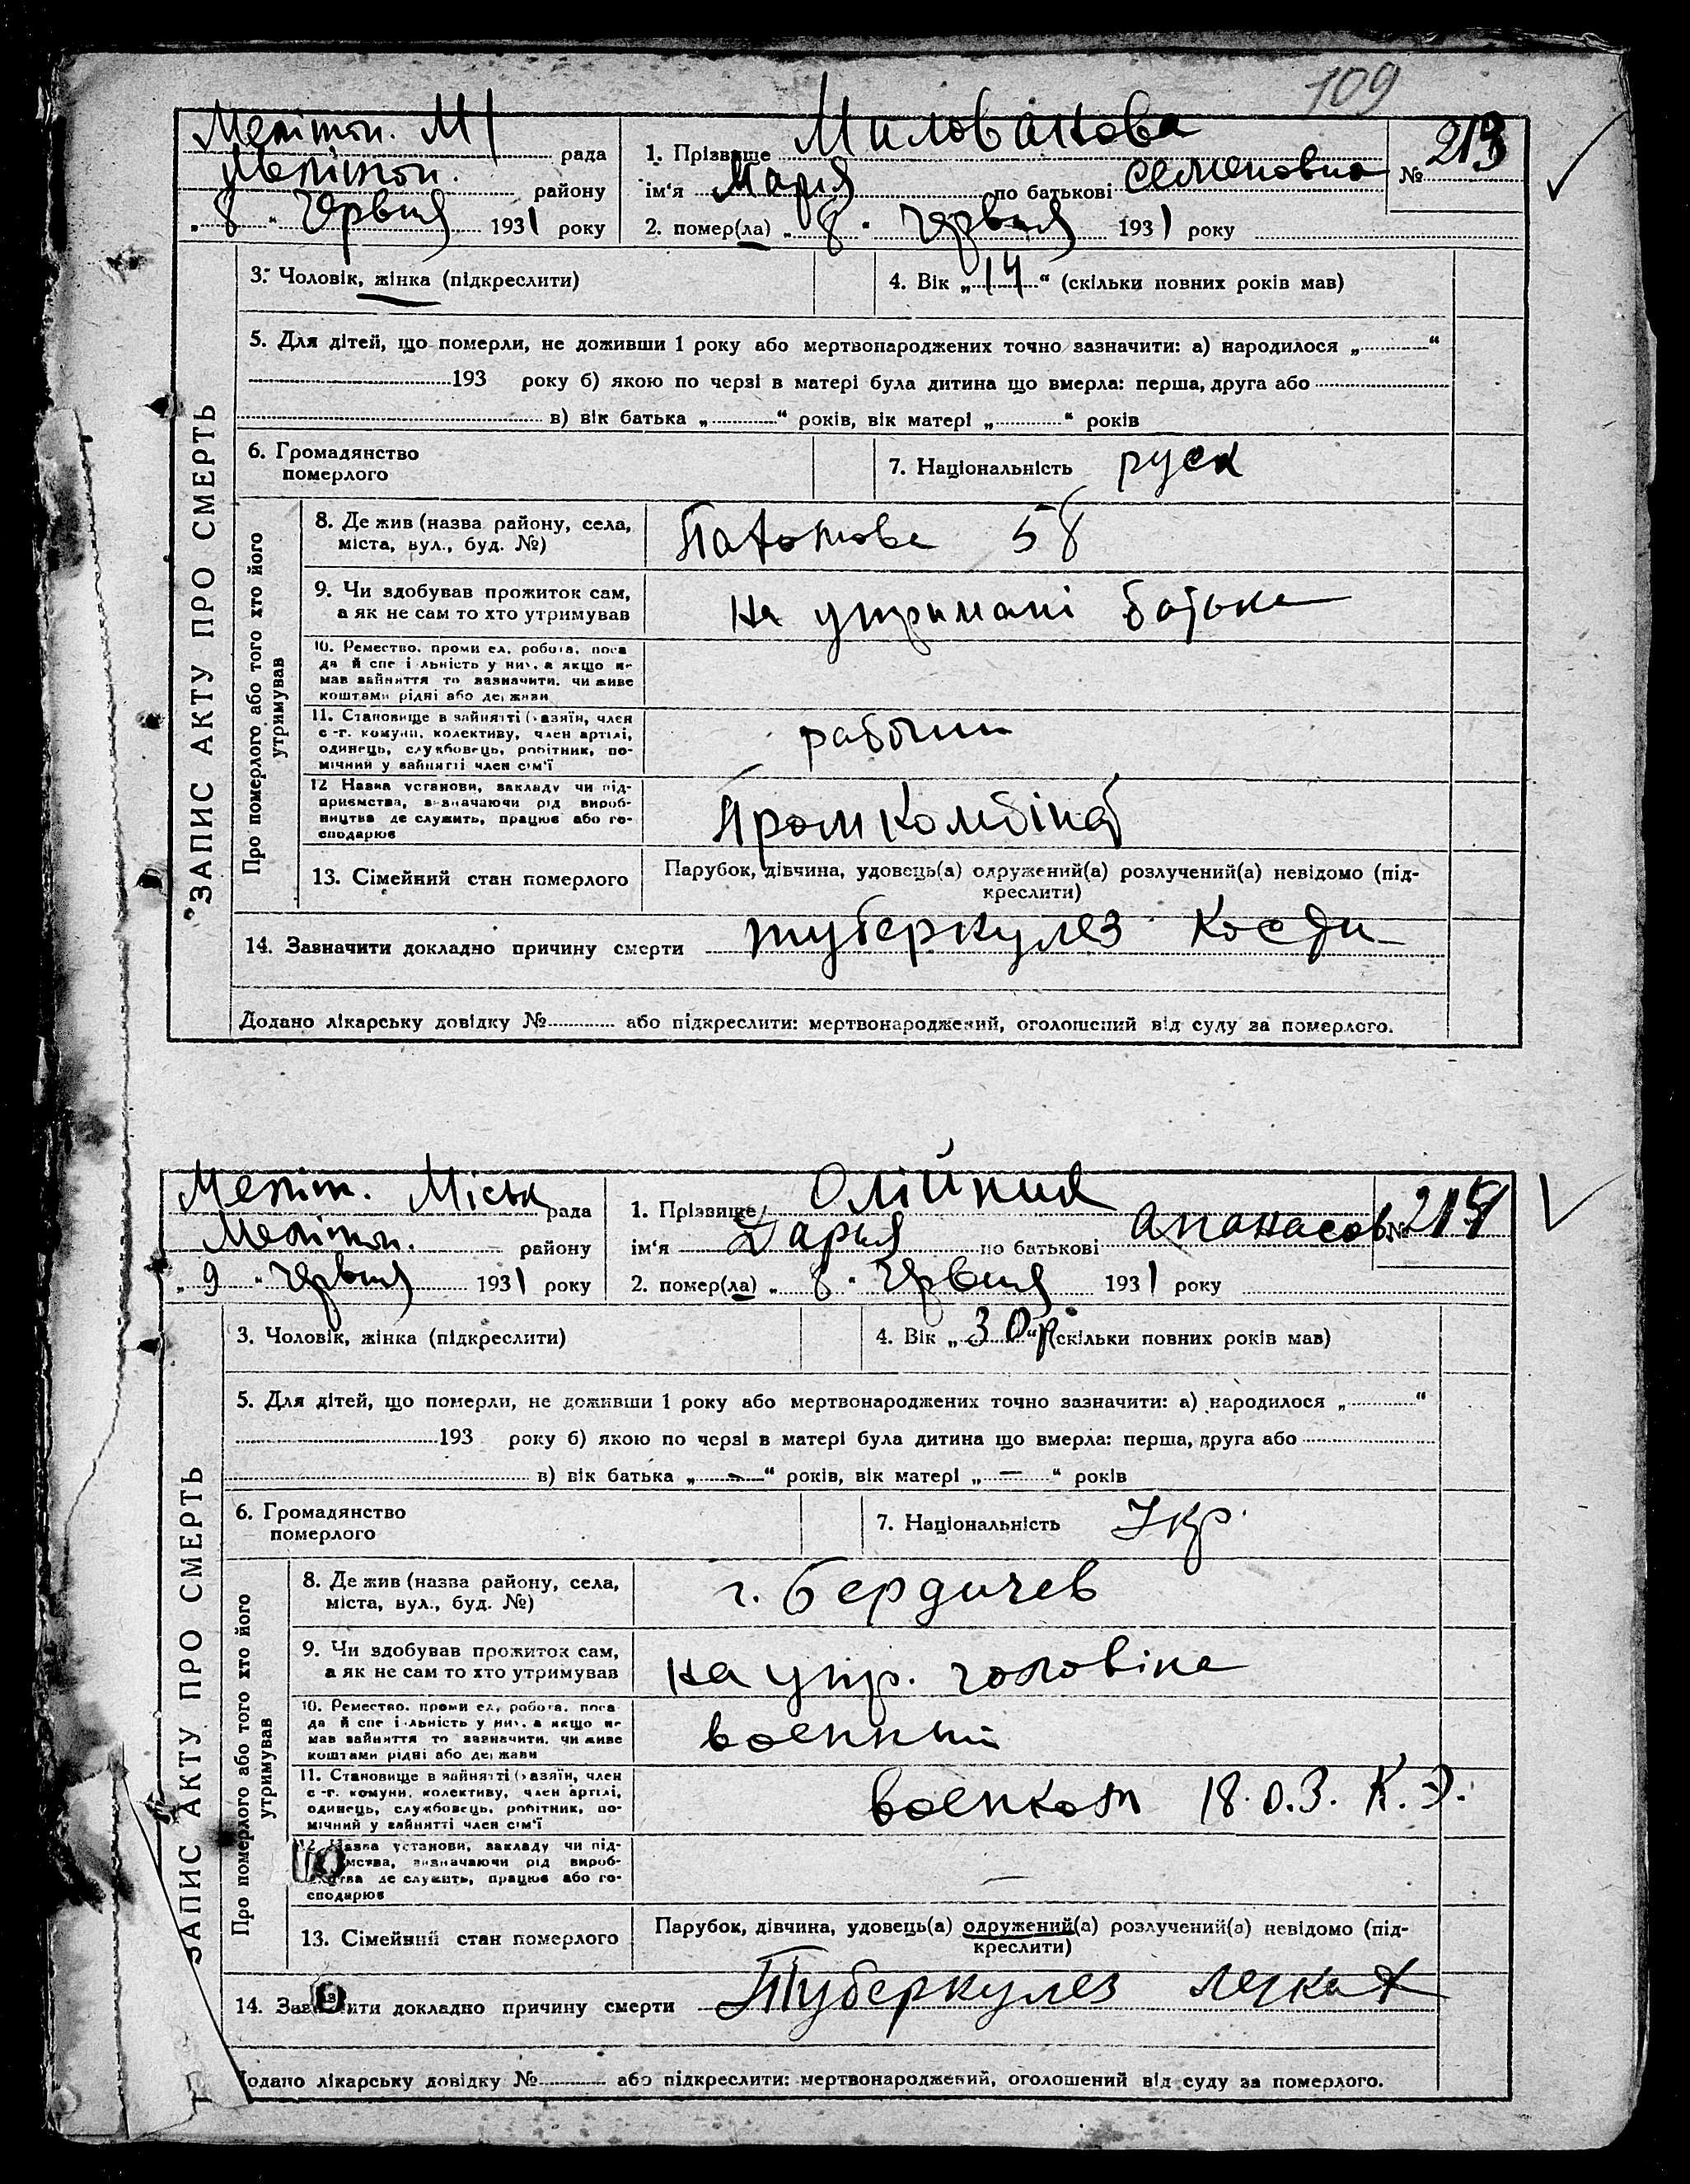 109
Меліт. М/
рада
Меліт.
району
„ 8 “ червня 1931 року
1. Прізвище Милованова
ім'я Марія по батькові Семеновна
№ 213
2. помер(ла) „ 8 “ червня 1931 року
ЗАПИС АКТУ ПРО СМЕРТЬ
3. Чоловік, жінка (підкреслити)
4. Вік „ 14 “ (скільки повних років мав)
5. Для дітей, що померли, не доживши 1 року або мертвонароджених точно зазначити: а) народилося „ “
193 року б) якою по черзі в матері була дитина що вмерла: перша, друга або
в) вік батька „ “ років, вік матері „ “ років
6. Громадянство
померлого
7. Національність руск
Про померлого або того хто його
утримував
8. Де жив (назва району, села,
міста, вул., буд. №)
58
9. Чи здобував прожиток сам,
а як не сам то хто утримував
на утримані батька
10. Ремество, проми ел, робота, поса
да й спе і льність у них, а якщо не
мав зайняття то зазначити, чи живе
коштами рідні або держави
11. Становище в зайнятті (хазяїн, член
с.-г. комуни, колективу, член артілі,
одинець, службовець, робітник, по-
мічний у зайнятті член сім'ї
рабочий
12 Назва установи, закладу чи під-
приємства, визначаючи рід вироб-
ництва де служить, працює або го-
сподарює
Промкомбінат
13. Сімейний стан померлого
Парубок, дівчина, удовець(а) одружений(а) розлучений(а) невідомо (під-
креслити)
14. Зазначити докладно причину смерти туберкулез кости
Додано лікарську довідку № або підкреслити: мертвонароджений, оголошений від суду за померлого.
Меліт. Міськ
рада
Меліт.
району
„ 9 “ червня 1931 року
1. Прізвище Олійник
ім'я Дарья по батькові Апанасов
№
2. помер(ла) „ 8 “ червня 1931 року
ЗАПИС АКТУ ПРО СМЕРТЬ
3. Чоловік, жінка (підкреслити)
4. Вік „ 30 р “ (скільки повних років мав)
5. Для дітей, що померли, не доживши 1 року або мертвонароджених точно зазначити: а) народилося „ “
193 року б) якою по черзі в матері була дитина що вмерла: перша, друга або
в) вік батька „ — “ років, вік матері „ — “ років
6. Громадянство
померлого
7. Національність Укр.
Про померлого або того хто його
утримував
8. Де жив (назва району, села,
міста, вул., буд. №)
г. Бердичев
9. Чи здобував прожиток сам,
а як не сам то хто утримував
на утр. чоловіка
10. Ремество, проми ел, робота, поса
да й спе і льність у них, а якщо не
мав зайняття то зазначити, чи живе
коштами рідні або держави
военный
11. Становище в зайнятті (хазяїн, член
с.-г. комуни, колективу, член артілі,
одинець, службовець, робітник, по-
мічний у зайнятті член сім'ї
военком 18. О.З. К.Э.
12. Назва установи, закладу чи під-
мства, визначаючи рід вироб-
ництва де служить, працює або го-
сподарює
—
13. Сімейний стан померлого
Парубок, дівчина, удовець(а) одружений(а) розлучений(а) невідомо (під-
креслити)
14. Зазначити докладно причину смерти Туберкулез легких
Додано лікарську довідку № або підкреслити: мертвонароджений, оголошений від суду за померлого.